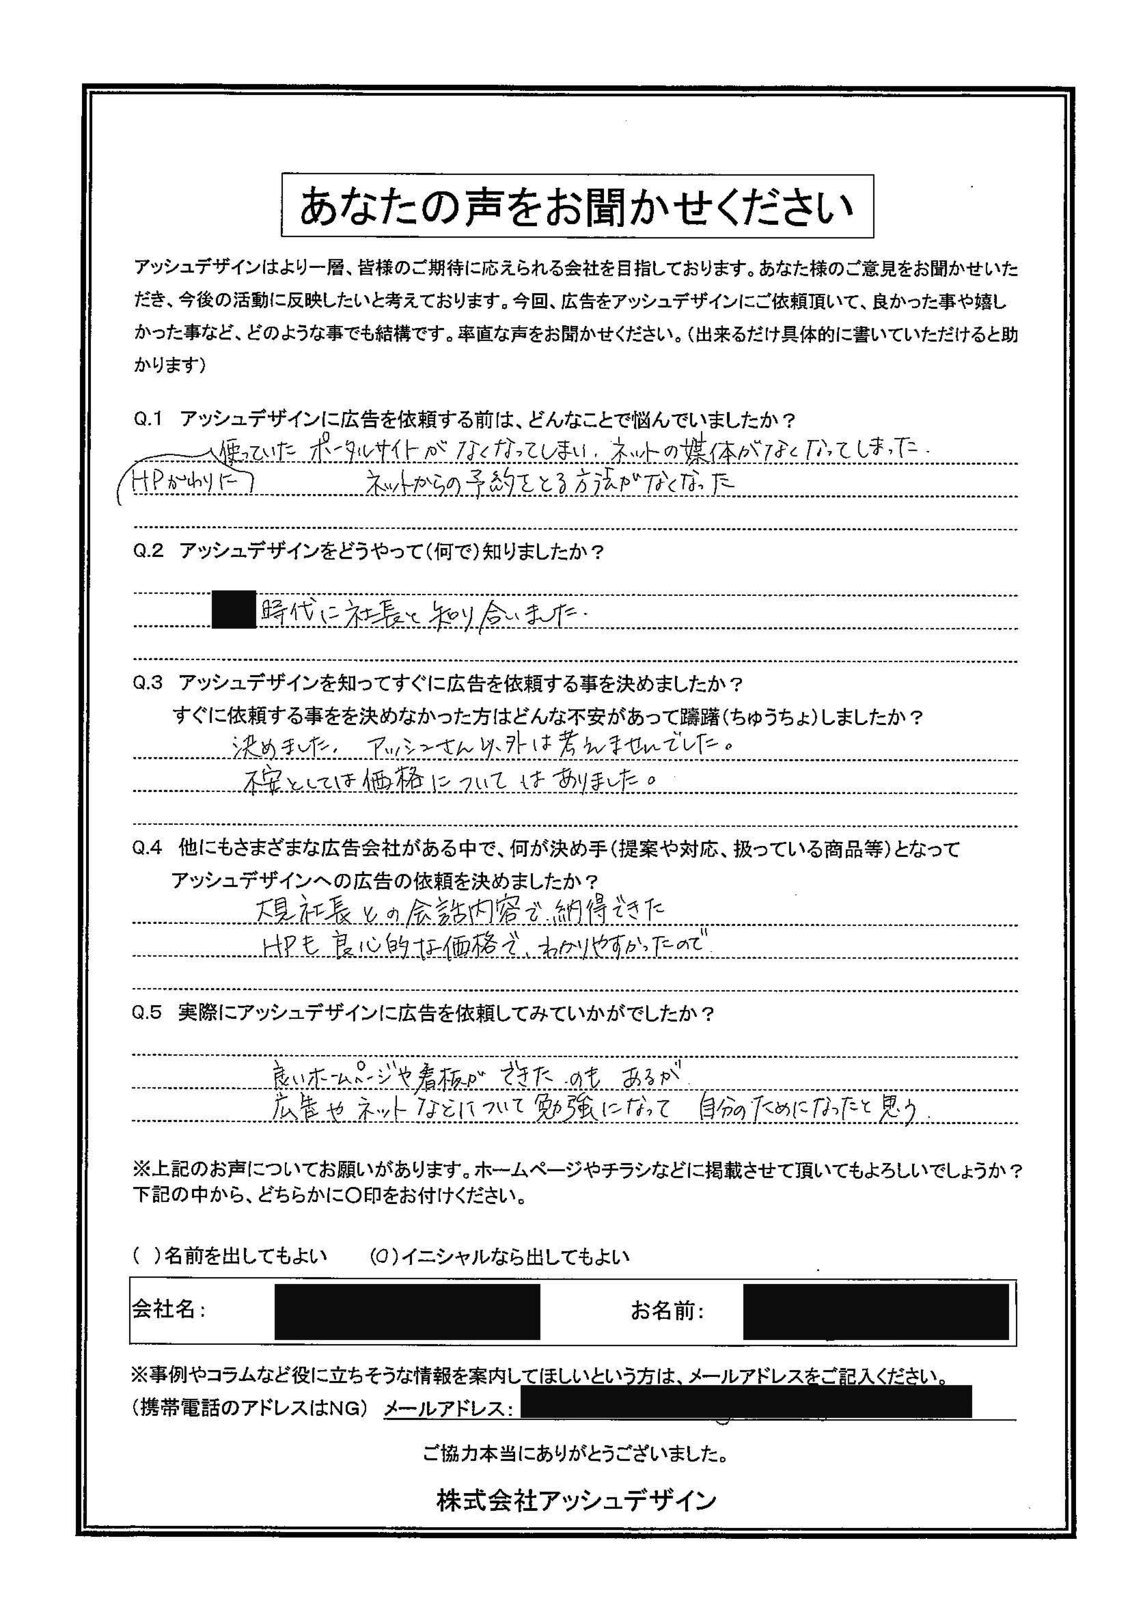 あなたの声をお聞かせください
アッシュデザインはより一層、皆様のご期待に応えられる会社を目指しております。あなた様のご意見をお聞かせいた
だき、今後の活動に反映したいと考えております。今回、広告をアッシュデザインにご依頼頂いて、良かった事や嬉し
かった事など、どのような事でも結構です。率直な声をお聞かせください。（出来るだけ具体的に書いていただけると助
かります）
Q.1 アッシュデザインに広告を依頼する前は、どんなことで悩んでいましたか？
使っていた ポータルサイトが なくなってしまい、ネットの媒体がなくなってしまった.
HPがわりに ネットからの予約をとる方法がなくなった
Q.2 アッシュデザインをどうやって（何で）知りましたか？
時代に社長と知り合いました.
Q.3 アッシュデザインを知ってすぐに広告を依頼する事を決めましたか？
すぐに依頼する事をを決めなかった方はどんな不安があって躊躇（ちゅうちょ）しましたか？
決めました. アッシュさん以外は考えませんでした。
不安としては価格については ありました。
Q.4 他にもさまざまな広告会社がある中で、何が決め手（提案や対応、扱っている商品等）となって
アッシュデザインへの広告の依頼を決めましたか？
社長との会話内容で、納得できた
HPも良心的な価格で、わかりやすかったので
Q.5 実際にアッシュデザインに広告を依頼してみていかがでしたか？
良いホームページや看板ができた のも あるが
広告やネットなどについて勉強になって 自分のためになったと思う.
※上記のお声についてお願いがあります。ホームページやチラシなどに掲載させて頂いてもよろしいでしょうか？
下記の中から、どちらかに〇印をお付けください。
（ ）名前を出してもよい （〇）イニシャルなら出してもよい
会社名： お名前：
※事例やコラムなど役に立ちそうな情報を案内してほしいという方は、メールアドレスをご記入ください。
（携帯電話のアドレスはNG） メールアドレス：
ご協力本当にありがとうございました。
株式会社アッシュデザイン